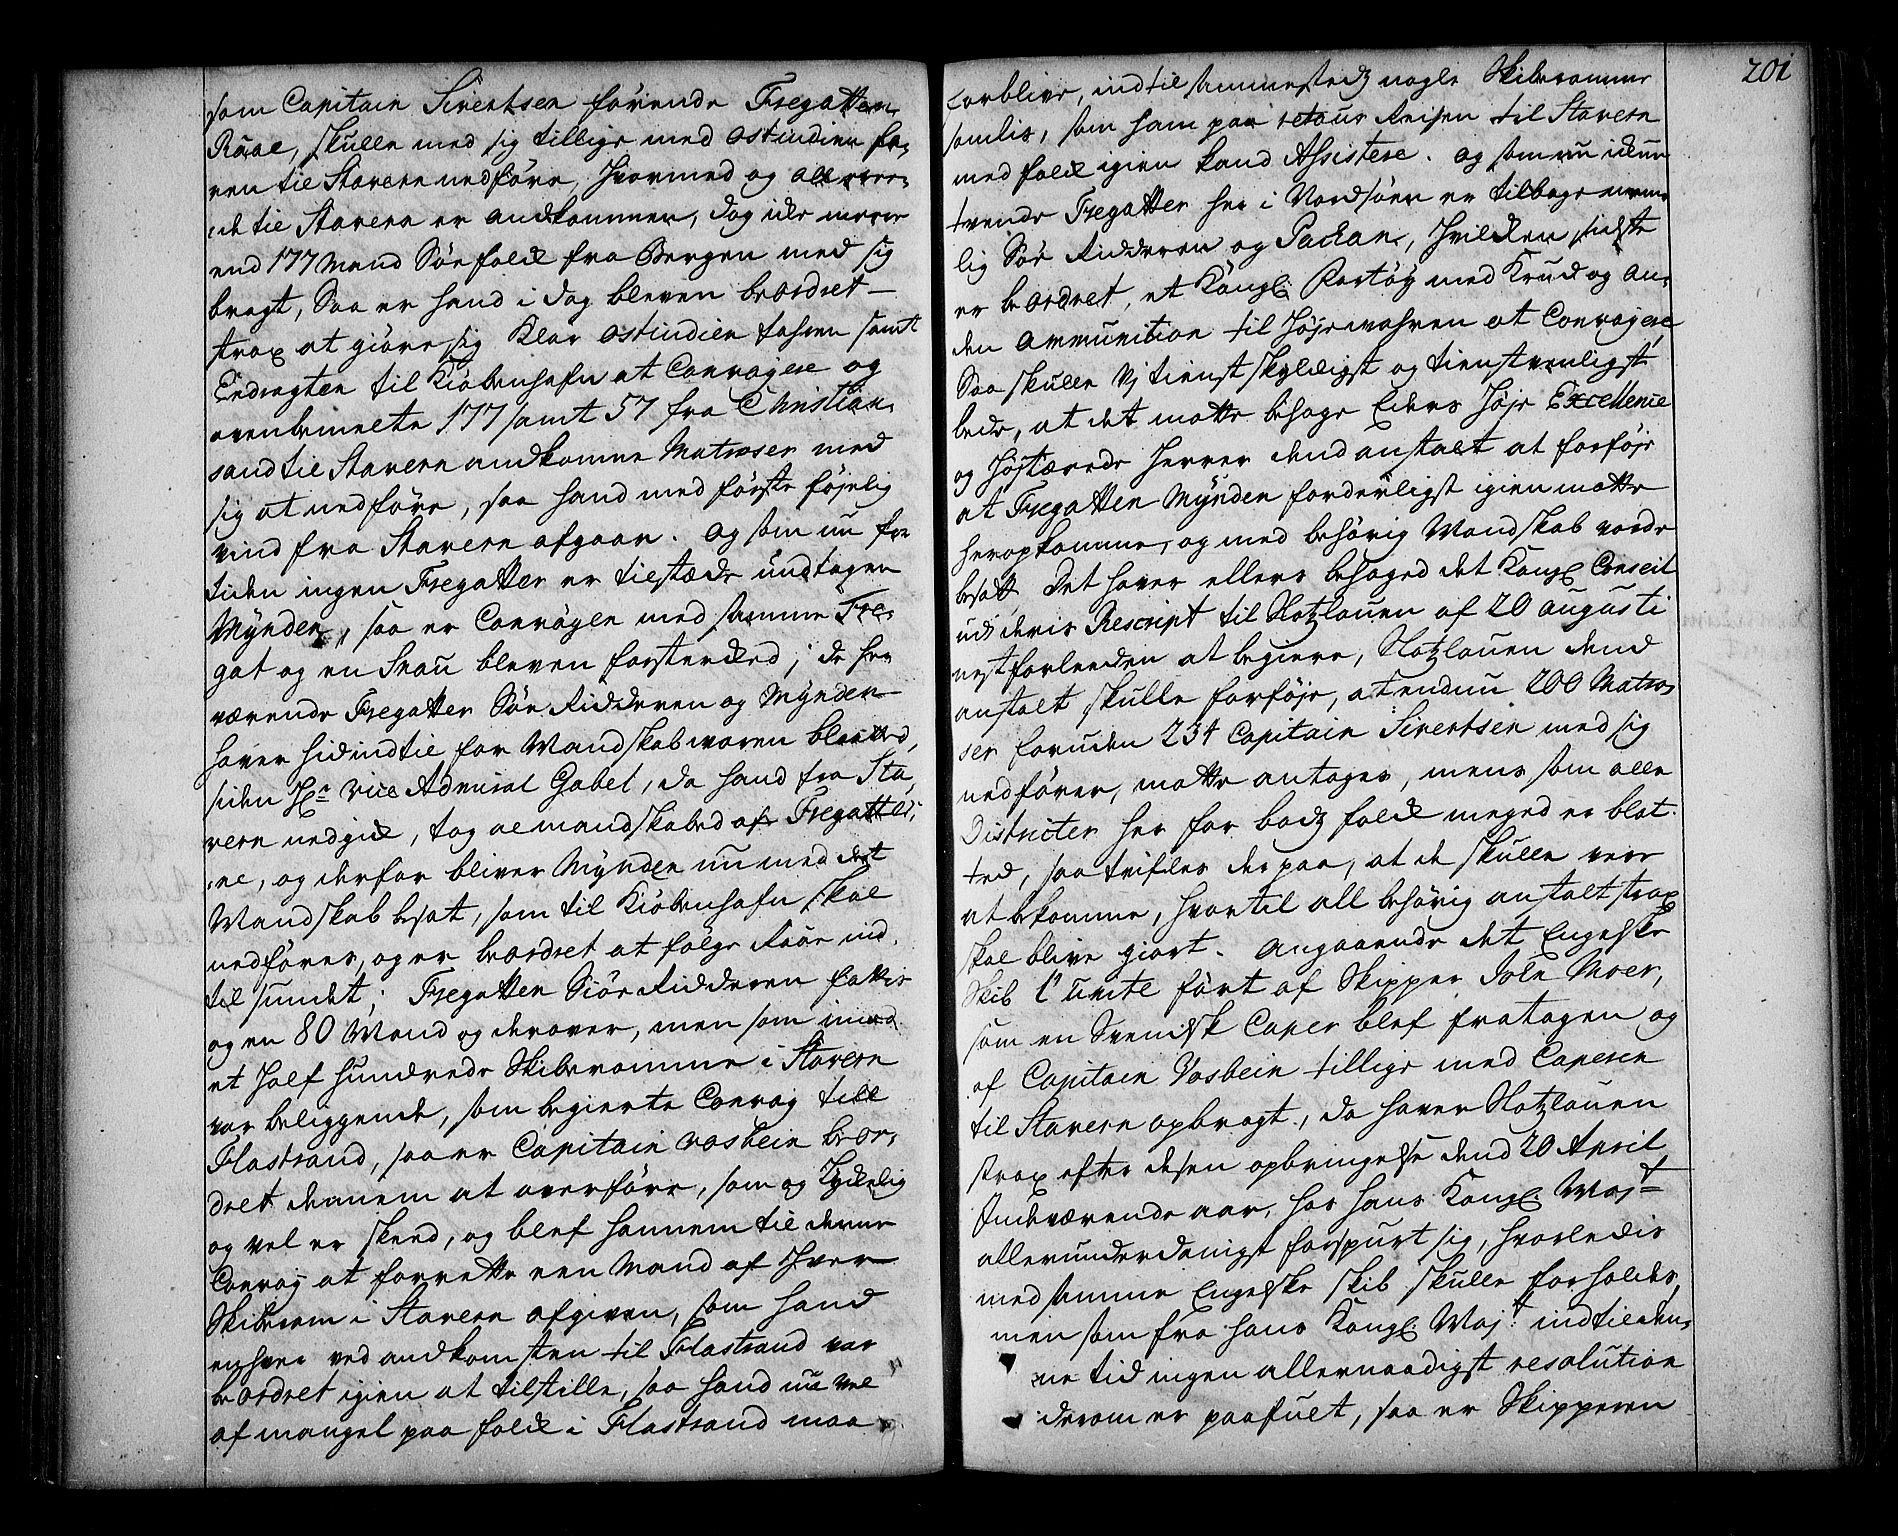 som Capitain Sivertsen förende Fregatten
Raae, skulle med sig tillige med ostindien fa-
ren til Stavern nedföre, hvormed og allere-
de til Stavern er andkommen, dog icke mere
end 177 Mand Söefolck fra Bergen med sig
bragt, Saa er hand i dag bleven beordret
strax at giöre sig klar ostindien fahren samt
Endragten til Kiöbenhafn at Convojere og
ovenbemelte 177 samt 57 fra Christian-
sand til Stavern andkomne Matroser med
sig at nedföre, saa hand med förste föjelig
vind fra Stavern afgaar. og som nu for
tiden ingen Fregatter er tilstæde undtagen
Mynden, saa er Convojen med samme Fre-
gat og en Snau bleven forstercked; de her
værende Fregatter Söe Ridderen og Mynden
haver hidindtil for Mandskab waren blotted,
siden Hr. Vice Admiral Gabel, da hand fra Sta-
vern nedgick, tog al mandskabed af Fregatter-
ne, og derfor bliver Mynden nu med det
Mandskab besat, som til Kiöbenhafn skal
nedföres, og er beordret at fölge Raae ind-
til sundet; Fregatten Siöe Ridderen fattis
og en 80 Mand og derover, men som imod
et half hundrede Skiberomme i Stavern
var beliggende, som begierte Convoy till
Flastrand, saa er Capitain Vosbein beor-
dret dennem at overföre, som og lyckelig
og vel er skeed, og blef hannem til denne
Convoy at forrette een Mand af hver
Skiberom i Stavern afgiven, som hand
enhver ved andkomsten til Flastrand var
beordret igien at tilstille, saa hand nu vel
af mangel paa folck i Flastrand maa
201
forblive, indtil sammestedz nogle Skiberomme
samlis, som ham paa retour Reisen til Stavern
med folck igien kand Assistere. og som nu ickun
tvende Fregatter her i Nordsöen er tilbage nem-
lig Söe Ridderen og Packan, hvilcken sidste
er beordret, et Kongl. Fartöy med Krud og an-
den Ammunition til Höjermahren at Convojere
Saa skulle Vj tienstskyldigst og tienstvenligst
bede, at det motte behage Eders Höje Excellence
og Höjstærede Herrer dend anstalt at forföje
at Fregatten Mynden forderligst igien motte
heropkomme, og med behörig Mandskab vorde
besatt. Det haver ellers behaged det Kongl. Conseil
udi deris Rescript til Slotzlauen af 20 augusti
nestforleeden at begiere, Slotzlauen dend
anstalt skulle forföje, at endnu 200 Matro-
ser foruden 234 Capitain Sivertsen med sig
nedförer, motte antages, mens som alle
Districter her for baadz folck meged er blot-
ted, saa tvifles der paa, at de skulle vere
at bekomme, hvortil all behörig anstalt strax
skal blive giort. Angaaende det Engelske
Skib l'unite fört af Skipper Jole Moer,
som en Svensk Caper blef fratagen og
af Capitain Vosbein tillige med Caperen
til Stavern opbragt, da haver Slotzlauen
strax efter desen opbringelse dend 20 April
Indeværende aar, hos hans Kongl. Mayt
allerunderdanigst forspurt sig, hvorledis
med samme Engelske skib skulle forholdes,
men som fra hans Kongl. Mayt indtil den-
ne tid ingen allernaadigst resolution
derom er paafuldt, saa er Skipperen